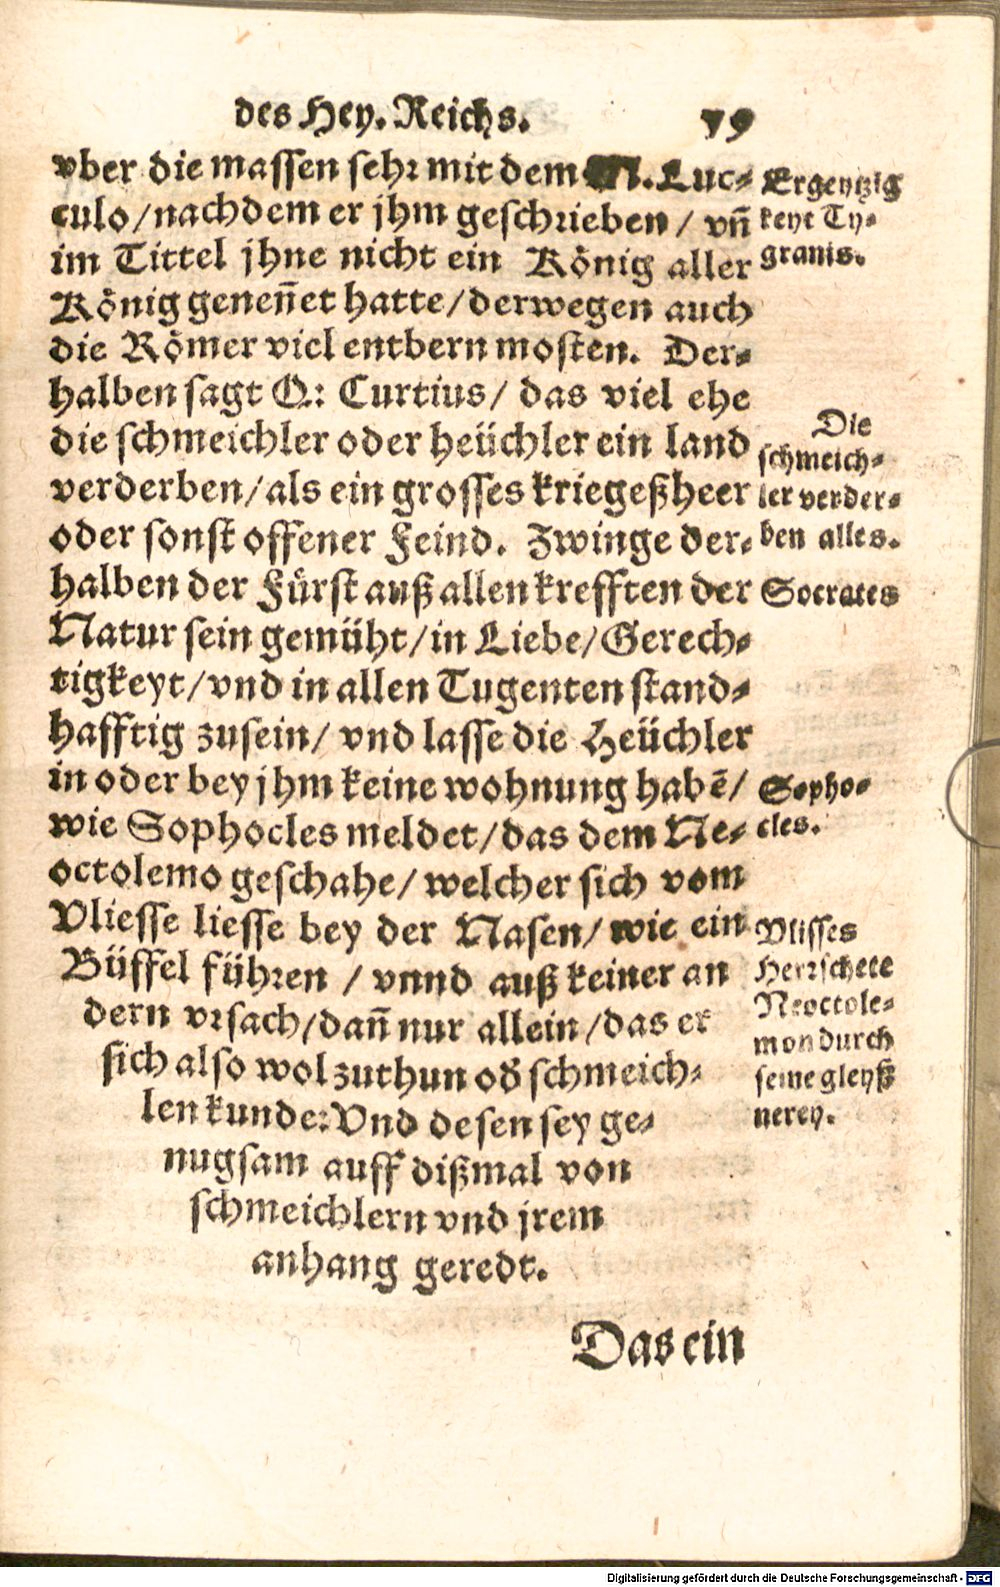 des Hey. Reichs. 79
vber die massen sehr mit dem M. Luc-
culo/nachdem er jhm geschrieben / vñ
im Tittel jhne nicht ein König aller
König geneñet hatte/derwegen auch
die Römer viel entbern mosten. Der-
halben sagt Q: Curtius/ das viel ehe
die schmeichler oder heüchler ein land
verderben/als ein grosses kriegeßheer
oder sonst offener Feind. Zwinge der-
halben der Fürst auß allen krefften der
Natur sein gemüht/in Liebe/Gerech-
tigkeyt/vnd in allen Tugenten stand-
hafftig zusein/ vnd lasse die Heüchler
in oder bey jhm keine wohnung habē/
wie Sophocles meldet/das dem Ne-
octolemo geschahe/welcher sich vom
Vliesse liesse bey der Nasen/wie ein
Büffel führen / vnnd auß keiner an
dern vrsach/dañ nur allein/das er
sich also wol zuthun oď schmeich-
len kunde: Vnd desen sey ge-
nugsam auff dißmal von
schmeichlern vnd jrem
anhang geredt.
Das ein
Ergeytzig
keyt Ty-
granis.
Die
schmeich-
ler verder-
ben alles.
Socrates
Sopho-
cles.
Vlisses
Herrschete
Neoctole-
mon durch
seine gleyß
nerey.
Digitalisierung gefördert durch die Deutsche Forschungsgemeinschaft - DFG